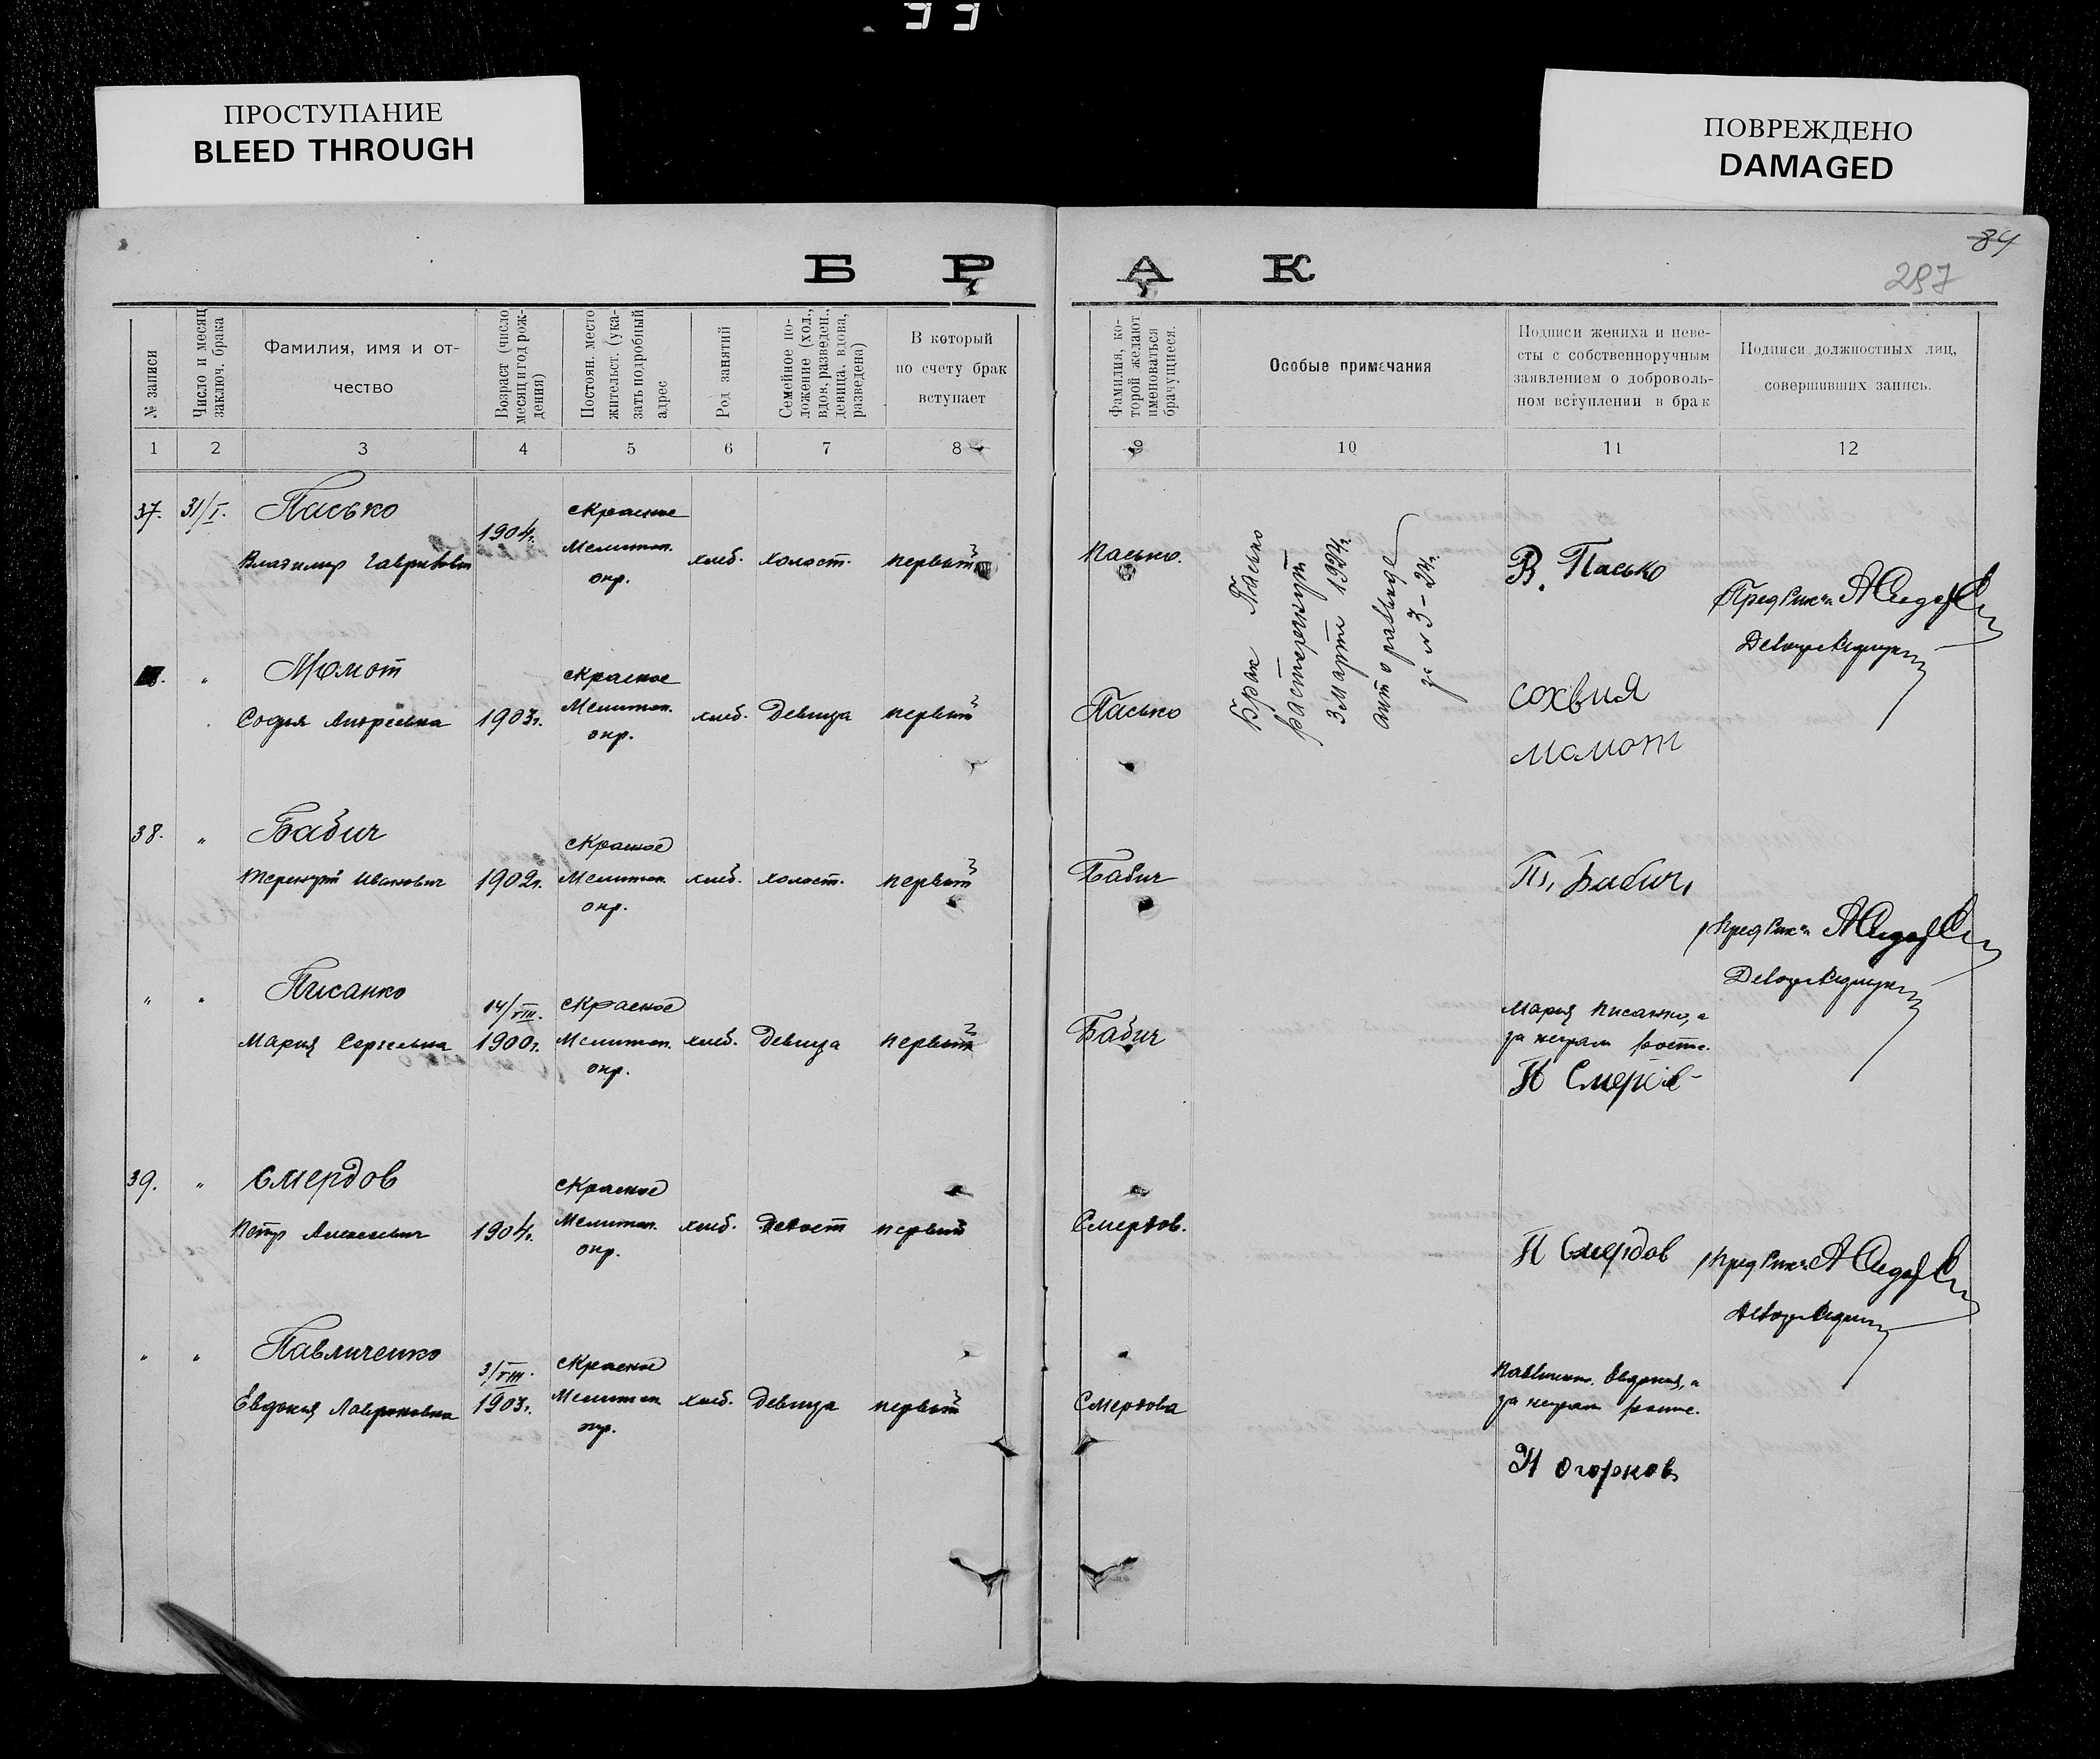 ПРОСТУПАНИЕ
BLEED THROUGH
ПОВРЕЖДЕНО
DAMAGED
84
297
БРАК
№ записи
Число и месяц
заключ. брака
Фамилия, имя и от-
чество
Возраст (число
месяц и год рож-
дения)
Постоян. место
жительст. (ука-
зать подробный
адрес
Род занятий
Семейное по-
ложение (хол.,
вдов, разведен.,
девица, вдова,
разведена)
В который
по счету брак
вступает
Фамилия, ко-
торой желают
именоваться
брачущиеся.
Особые примечания
Подписи жениха и неве-
сты с собственноручным
заявлением о доброволь-
ном вступлении в брак
Подписи должностных лиц,
совершивших запись.
1 2 3 4 5 6 7 8 9 10 11 12
37. 31/I. Пасько
Владимир Гаврилович
1904г.
с Красное
Мелитоп.
окр.
хлеб. холост. первый
Пасько.
Брак Пасько
расторгнут
3 марта 1924г.
акт о разводе
за № 3-24г.
В. Пасько
Пред Рик'а
" Момот
София Андреевна
1903г.
с Красное
Мелитоп.
окр.
хлеб. Девица первый
Пасько
сохвия
момот
38. " Бабич
Терентий Иванович
1902г.
с Красное
Мелитоп.
окр.
хлеб. холост. первый
Бабич
Бабич
Пред Рик'а
" " Писанко
Мария Сергеевна
14/VIII.
1900г.
с Красное
Мелитоп.
окр.
хлеб. Девица первый
Бабич
Мария Писанко, а
за неграм роспис.
П Смердов
39. " Смердов
Петр Алексеевич
1904г.
с Красное
Мелитоп.
окр.
хлеб. первый
Смердов.
П Смердов
Пред Рик'а
" " Павличенко
Евдокия
3/VIII.
1903г.
с Красное
Мелитоп
окр.
хлеб. Девица первый
Смердова
Павличен. Евдокия, а
за неграм роспис.
Н Огорков